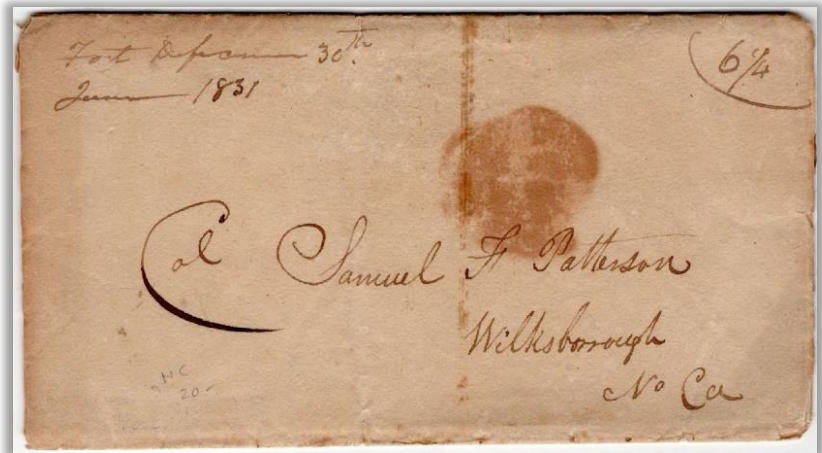 Fort Defiance 30th
June 1831
6¼
Col Samuel F Patterson
Wilksborrough
No Ca
NC
20-